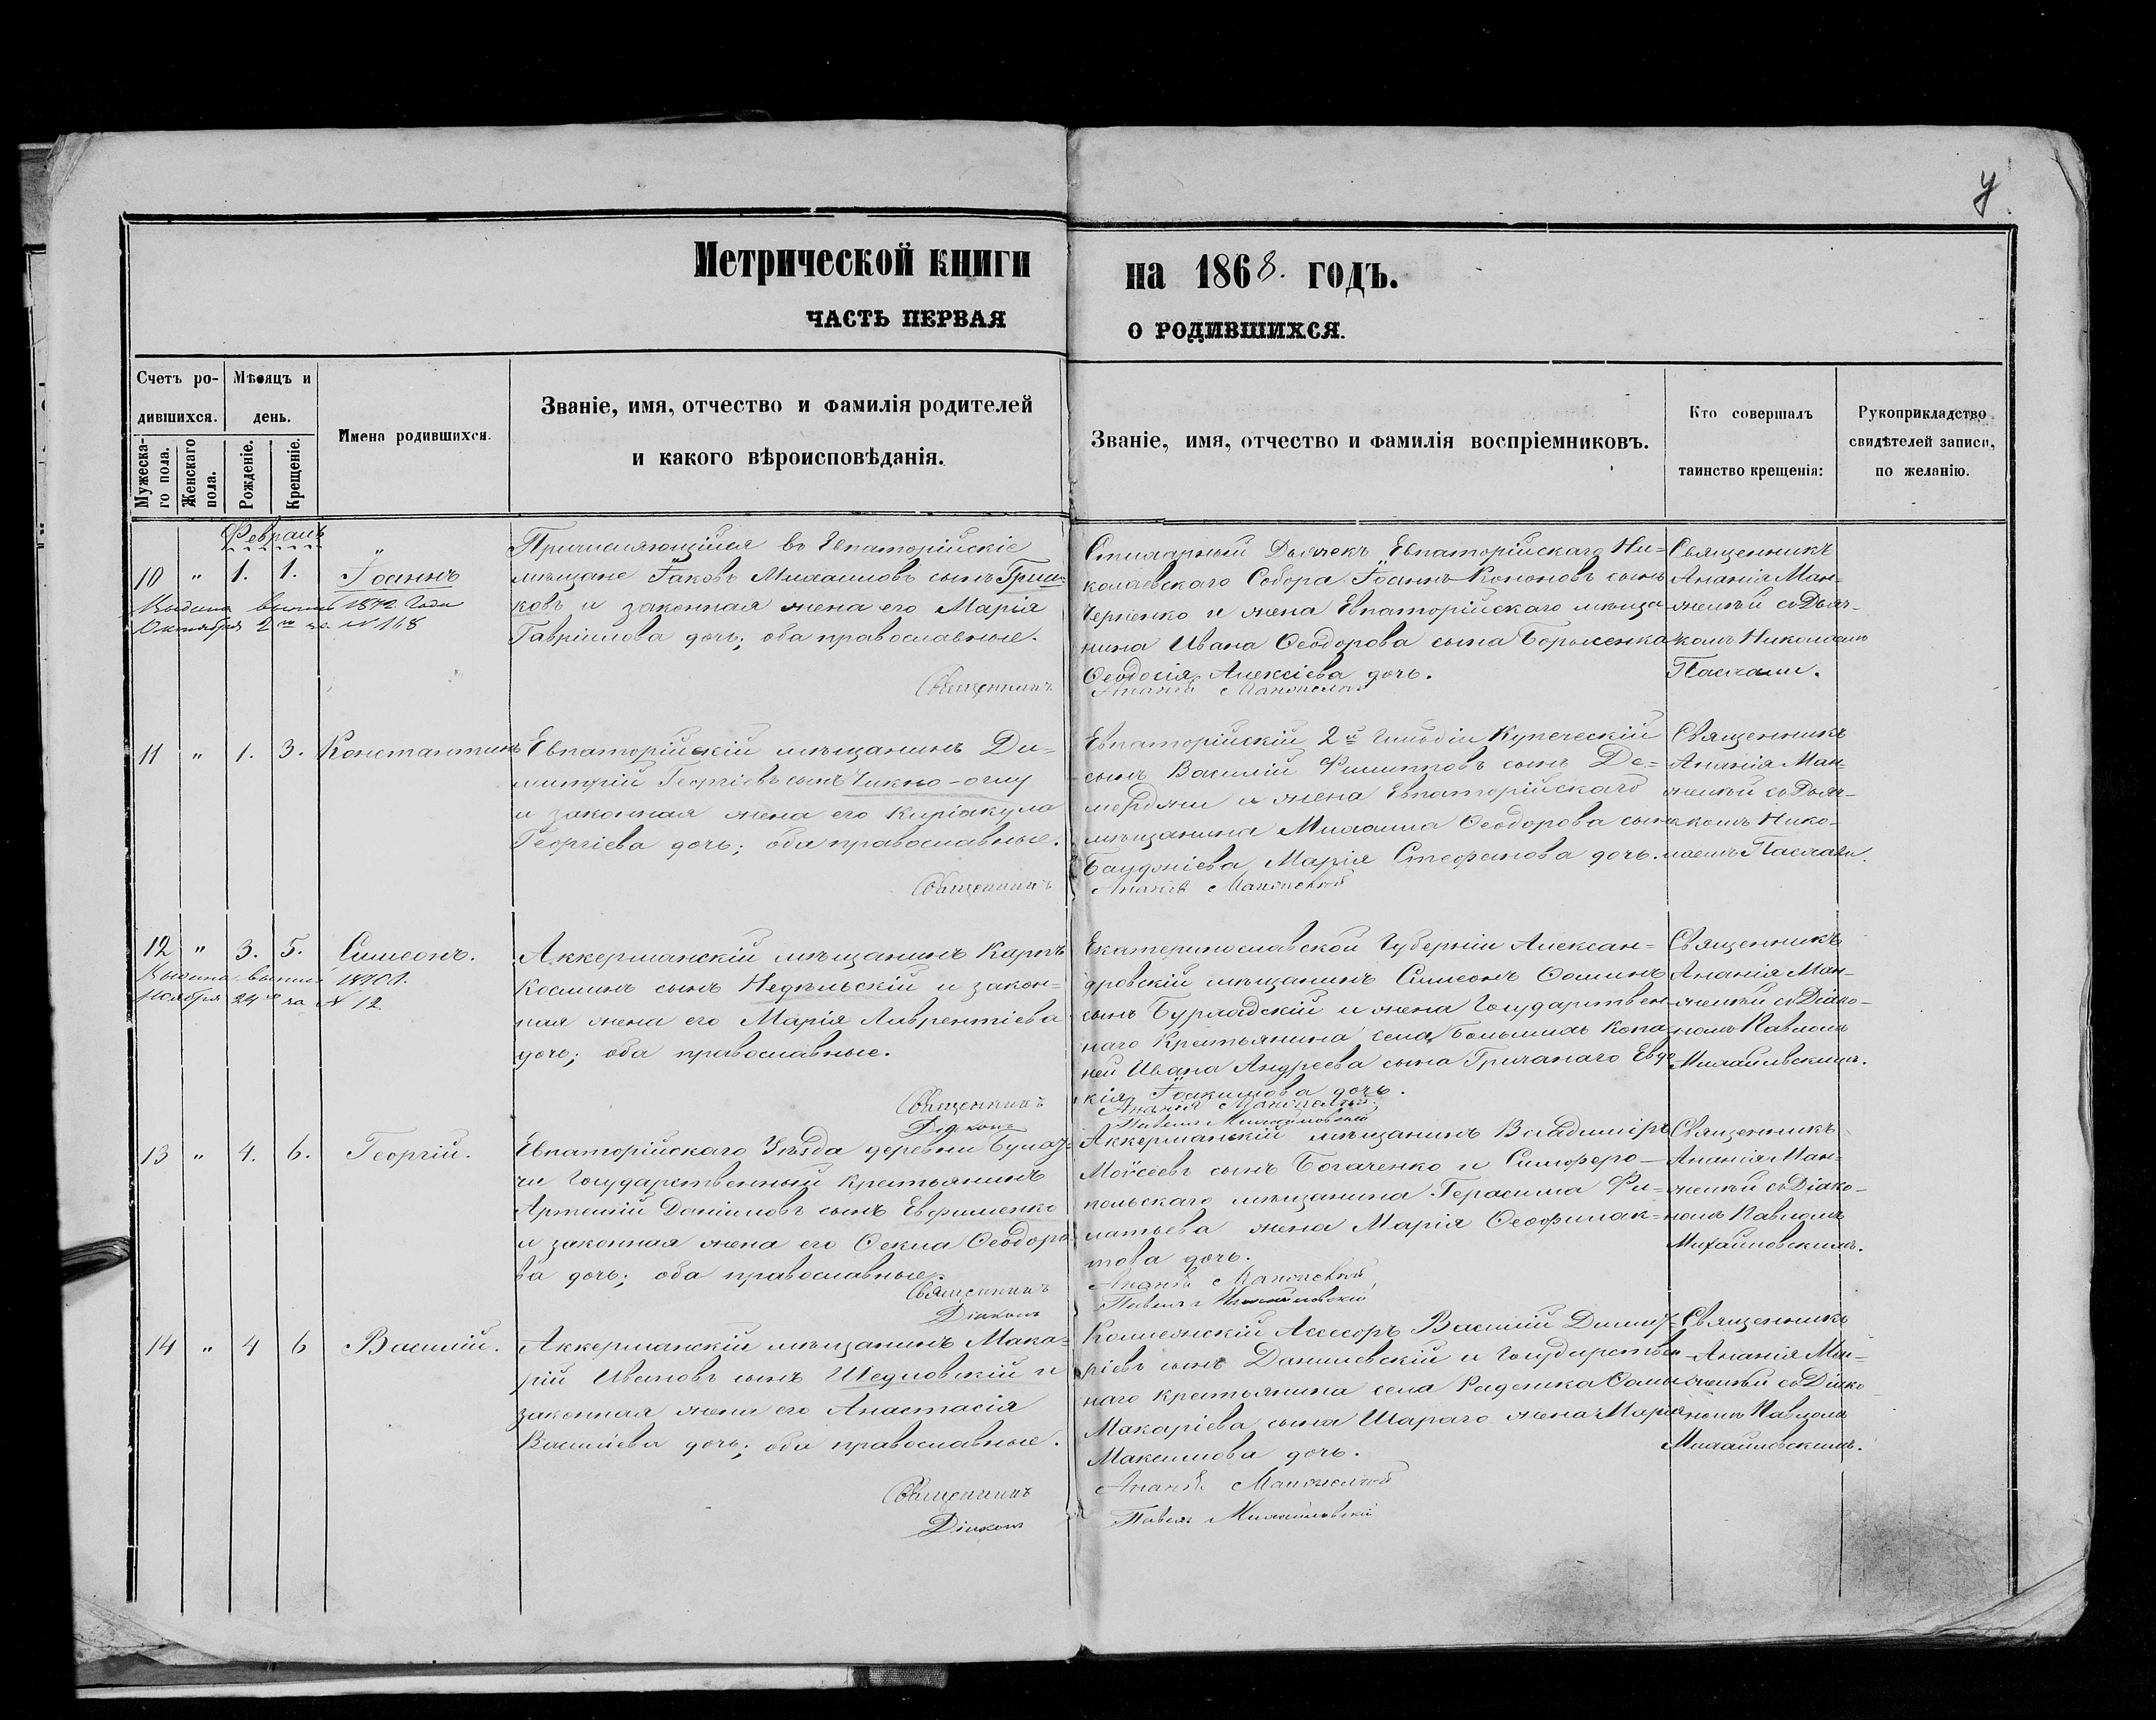 Метрической книги на 1868. годъ.
ЧАСТЬ ПЕРВАЯ О РОДИВШИХСЯ.
Счетъ родившихся.
Мужескаго пола.
Женскаго пола.
Мѣсяцъ и день.
Рожденіе.
Крещеніе.
Имена родившихся.
Званіе, имя, отчество и фамилія родителей
и какого вѣроисповѣданія.
Званіе, имя, отчество и фамилія воспріемниковъ.
Кто совершалъ
таинство крещенія:
Рукоприкладство
свидѣтелей записи,
по желанію.
Февраль
10 " 1. 1. Іоаннъ
1872 Года
Октября 2го № 168
Причисляющійся въ Евпаторійскіе
мѣщане Іаковъ Михаиловъ сынъ Гриш-
ковъ и законная жена его Марія
Гавріилова дочь; оба православные.
Стихарный Дьячекъ Евпаторійскаго Ни-
колаевскаго Собора Іоаннъ Кононовъ сынъ
Черненко и жена Евпаторійскаго мѣща-
нина Ивана Ѳеодорова сына Борысенка
Ѳеодосія Алексіева дочь.
Священникъ
Ананія Ман-
желѣй съ Дьяч-
комъ Николаемъ
Пасхали.
Священникъ Ананія Манжелѣй
11 " 1. 3. Константинъ
Евпаторійскій мѣщанинъ Ди-
митрій Георгіевъ сынъ Чикно-оглу
и законная жена его Киріакула
Георгіева дочь; оба православные.
Евпаторійскій 2й Гильдіи Купеческій
сынъ Василій Филипповъ сынъ Де-
мерджи и жена Евпаторійскаго
мѣщанина Михаила Ѳеодорова сына
Марія Стефанова дочь.
Священникъ
Ананія Ман-
желѣй съ Дьяч-
комъ Нико-
лаемъ Пасхали.
Священникъ Ананія Манжелѣй
12 " 3. 5. Симеонъ.
1870 г.
Ноября 24го за № 12.
Аккерманскій мѣщанинъ Карпъ
Косминъ сынъ Недѣльскій и закон-
ная жена его Марія Лаврентіева
дочь; оба православные.
Екатеринославской Губерніи Алексан-
дровскій мѣщанинъ Симеонъ Ѳоминъ
сынъ Бурладскій и жена Государствен-
наго Крестьянина села Большихъ Копа-
ней Ивана Андреева сына Гричанаго Евдо-
кія Іоакимова дочь.
Священникъ
Ананія Ман-
желѣй съ Діако-
номъ Павломъ
Михайловскимъ.
Священникъ Ананія Манжелѣй
Діаконъ Павелъ Михайловскій
13 " 4. 6. Георгій.
Евпаторійскаго Уѣзда деревни
Государственный крестьянинъ
Артемій Даніиловъ сынъ Евфименко
и законная жена его Ѳекла Ѳеодоро-
ва дочь; оба православные.
Аккерманскій мѣщанинъ Владиміръ
Моѵсеевъ сынъ Богаченко и Симферо-
польскаго мѣщанина Герасима Фи-
латьева жена Марія Ѳеофилак-
това дочь.
Священникъ
Ананія Ман-
желѣй съ Діако-
номъ Павломъ
Михайловскимъ.
Священникъ Ананія Манжелѣй
Діаконъ Павелъ Михайловскій
14 " 4 6 Василій.
Аккерманскій мѣщанинъ Мака-
рій Ивановъ сынъ Шедловскій и
законная жена его Анастасія
Васильева дочь; оба православные.
Коллежскій Асессоръ Василій Димит-
ріевъ сынъ Данилевскій и Государствен-
наго крестьянина села Раденска Ѳомы
Макаріева сына Шараго жена Марія
Максимова дочь.
Священникъ
Ананія Ман-
желѣй съ Діако-
номъ Павломъ
Михайловскимъ.
Священникъ Ананія Манжелѣй
Діаконъ Павелъ Михайловскій